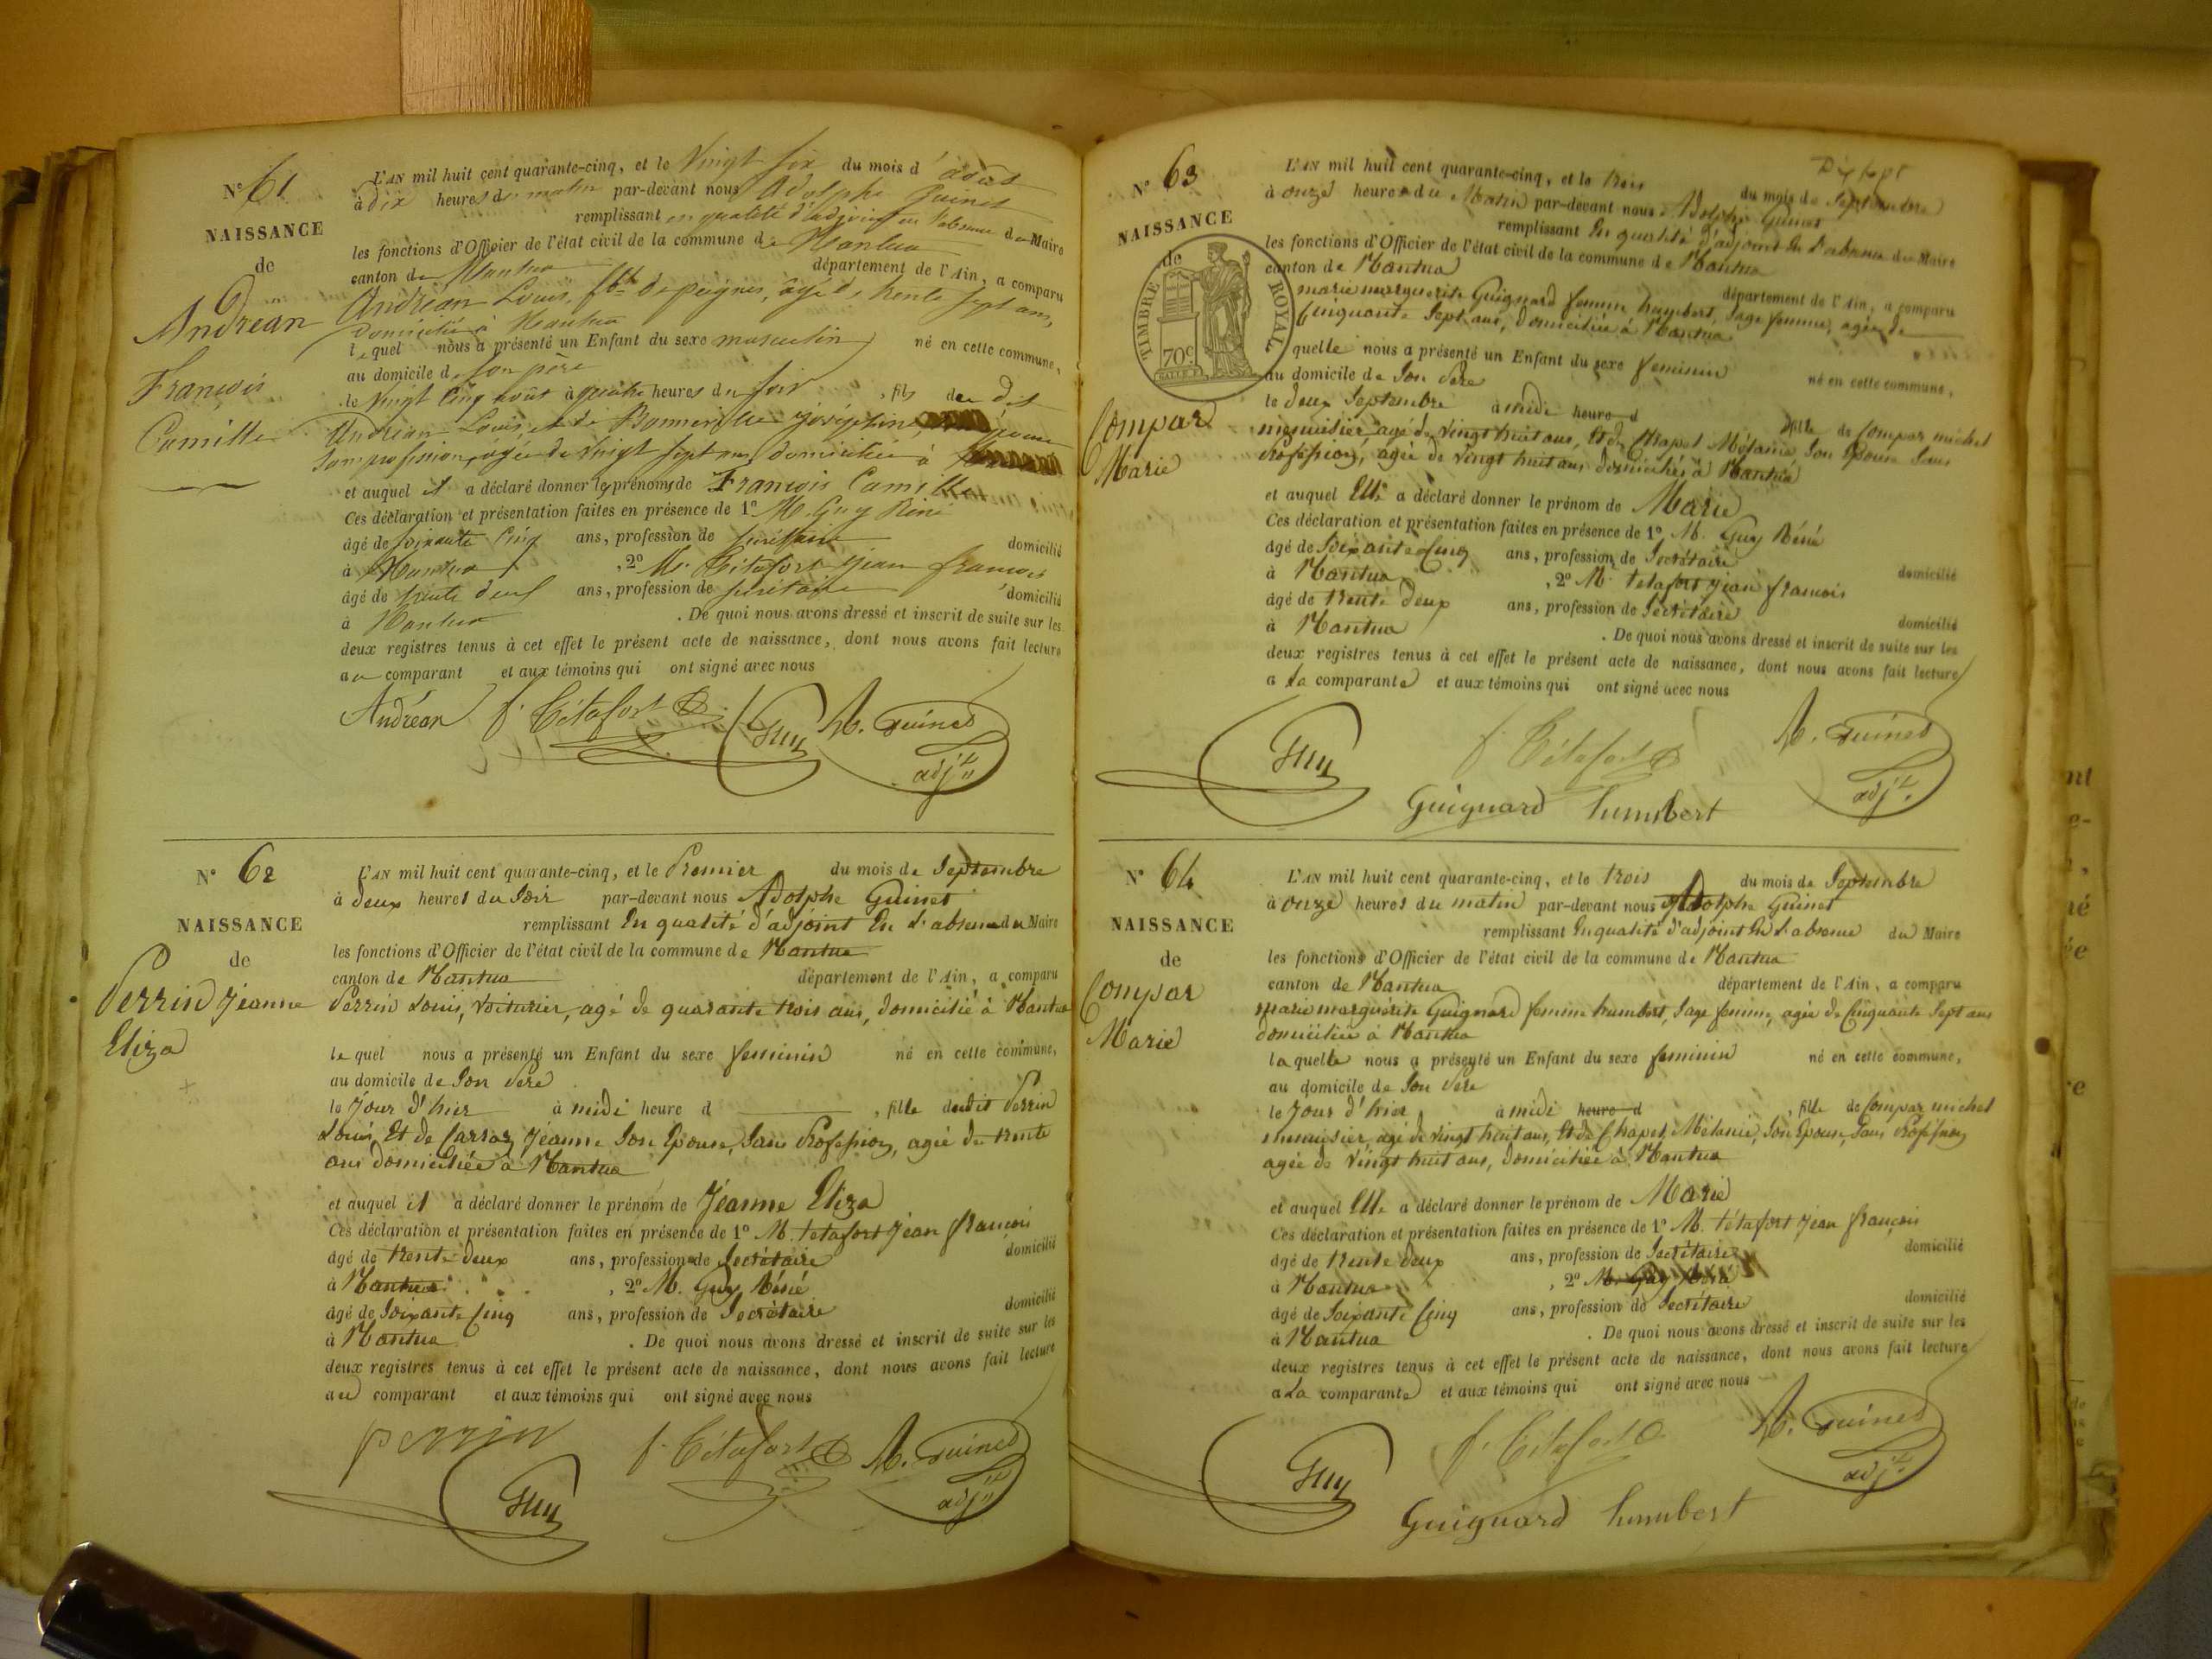 N° 61
NAISSANCE
de
Andréan
François
Camille
L'AN mil huit cent quarante-cinq, et le Vingt Six du mois d'août
à dix heures du matin par-devant nous Adolphe Guinet
remplissant en qualité d'adjoint en l'absence du Maire
les fonctions d'Officier de l'état civil de la commune de Nantua
canton de Nantua département de l'Ain, a comparu
Andréan Louis, fbt de peignes, âgé de trente sept ans,
domicilié à Nantua
lequel nous a présenté un Enfant du sexe masculin né en cette commune,
au domicile de son père
le vingt cinq août à quatre heures du soir, fils de dit
Andréan Louis et de Bonneville Joséphine, épouse
sans profession, âgée de vingt sept ans, domiciliée à
et auquel il a déclaré donner les prénoms de François Camille
Ces déclaration et présentation faites en présence de 1° M. Guy Réné
âgé de soixante cinq ans, profession de secrétaire domicilié
à Nantua, 2° Mr. Tétafort Jean François
âgé de trente deux ans, profession de secrétaire domicilié
à Nantua. De quoi nous avons dressé et inscrit de suite sur les
deux registres tenus à cet effet le présent acte de naissance, dont nous avons fait lecture
au comparant et aux témoins qui ont signé avec nous
Andréan f. Tétafort Guy A. Guinet
adjt
N° 62
NAISSANCE
de
Perrin Jéanne
Eliza
L'AN mil huit cent quarante-cinq, et le Premier du mois de Septembre
à deux heures du Soir par-devant nous Adolphe Guinet
remplissant En qualité d'adjoint En l'absence du Maire
les fonctions d'Officier de l'état civil de la commune de Nantua
canton de Nantua département de l'Ain, a comparu
Perrin Louis, Voiturier, agé de quarante trois ans, domicilié à Nantua
lequel nous a présenté un Enfant du sexe feminin né en cette commune,
au domicile de Son Père
le Jour d'hier à midi heure d , fille dudit Perrin
Louis, Et de Carraz Jéanne Son Epouse, Sans Profession, agée de trente
ans domiciliée à Nantua
et auquel il a déclaré donner le prénom de Jéanne Eliza
Ces déclaration et présentation faites en présence de 1° M. tetafort Jéan françois
âgé de trente deux ans, profession de Secrétaire domicilié
à Nantua, 2° M. Guy Réné
âgé de Soixante Cinq ans, profession de Secrétaire domicilié
à Nantua. De quoi nous avons dressé et inscrit de suite sur les
deux registres tenus à cet effet le présent acte de naissance, dont nous avons fait lecture
au comparant et aux témoins qui ont signé avec nous
perrin f. Tétafort A. Guinet
Guy adjt
Dix sept
N° 63
NAISSANCE
de
TIMBRE ROYAL
70c
Compar
Marie
L'AN mil huit cent quarante-cinq, et le trois du mois de Septembre
à onze heures du Matin par-devant nous Adolphe Guinet
remplissant En qualité d'adjoint En l'absence du Maire
les fonctions d'Officier de l'état civil de la commune de Nantua
canton de Nantua département de l'Ain, a comparu
marie marguerite Guignard femme humbert, Sage femme, agée de
Cinquante Sept ans, domiciliée à Nantua
quelle nous a présenté un Enfant du sexe feminin né en cette commune,
au domicile de Son Père
le deux Septembre à midi heure d , fille de Compar michel
menuisier, agé de vingt huit ans, Et de Chapel Mélanie, Son Epouse Sans
Profession, agée de vingt huit ans domiciliés à Nantua
et auquel Elle a déclaré donner le prénom de Marie
Ces déclaration et présentation faites en présence de 1° M. Guy Réné
âgé de Soixante Cinq ans, profession de Secrétaire domicilié
à Nantua, 2° M. tetafort Jéan françois
âgé de trente deux ans, profession de Secrétaire domicilié
à Nantua. De quoi nous avons dressé et inscrit de suite sur les
deux registres tenus à cet effet le présent acte de naissance, dont nous avons fait lecture
a La comparante et aux témoins qui ont signé avec nous
Guy f. Tétafort A. Guinet
Guignard humbert adjt.
N° 64
NAISSANCE
de
Compar
Marie
L'AN mil huit cent quarante-cinq, et le trois du mois de Septembre
à onze heures du matin par-devant nous Adolphe Guinet
remplissant En qualité d'adjoint En l'absence du Maire
les fonctions d'Officier de l'état civil de la commune de Nantua
canton de Nantua département de l'Ain, a comparu
marie marguérite Guignard femme humbert, Sage femme, agée de Cinquante Sept ans
domiciliée à Nantua
laquelle nous a présenté un Enfant du sexe feminin né en cette commune,
au domicile de Son Père
le Jour d'hier à midi heure d , fille de Compar michel
menuisier, agé de vingt huit ans, Et de Chapel Mélanie, Son Epouse, Sans Profession
agée de vingt huit ans, domiciliée à Nantua
et auquel Elle a déclaré donner le prénom de Marie
Ces déclaration et présentation faites en présence de 1° M. tétafort Jéan françois
âgé de trente deux ans, profession de Secrétaire domicilié
à Nantua, 2° M. Guy Réné
âgé de Soixante Cinq ans, profession de Secrétaire domicilié
à Nantua. De quoi nous avons dressé et inscrit de suite sur les
deux registres tenus à cet effet le présent acte de naissance, dont nous avons fait lecture
a La comparante et aux témoins qui ont signé avec nous
Guy f. Tétafort A. Guinet
Guignard humbert adjt.